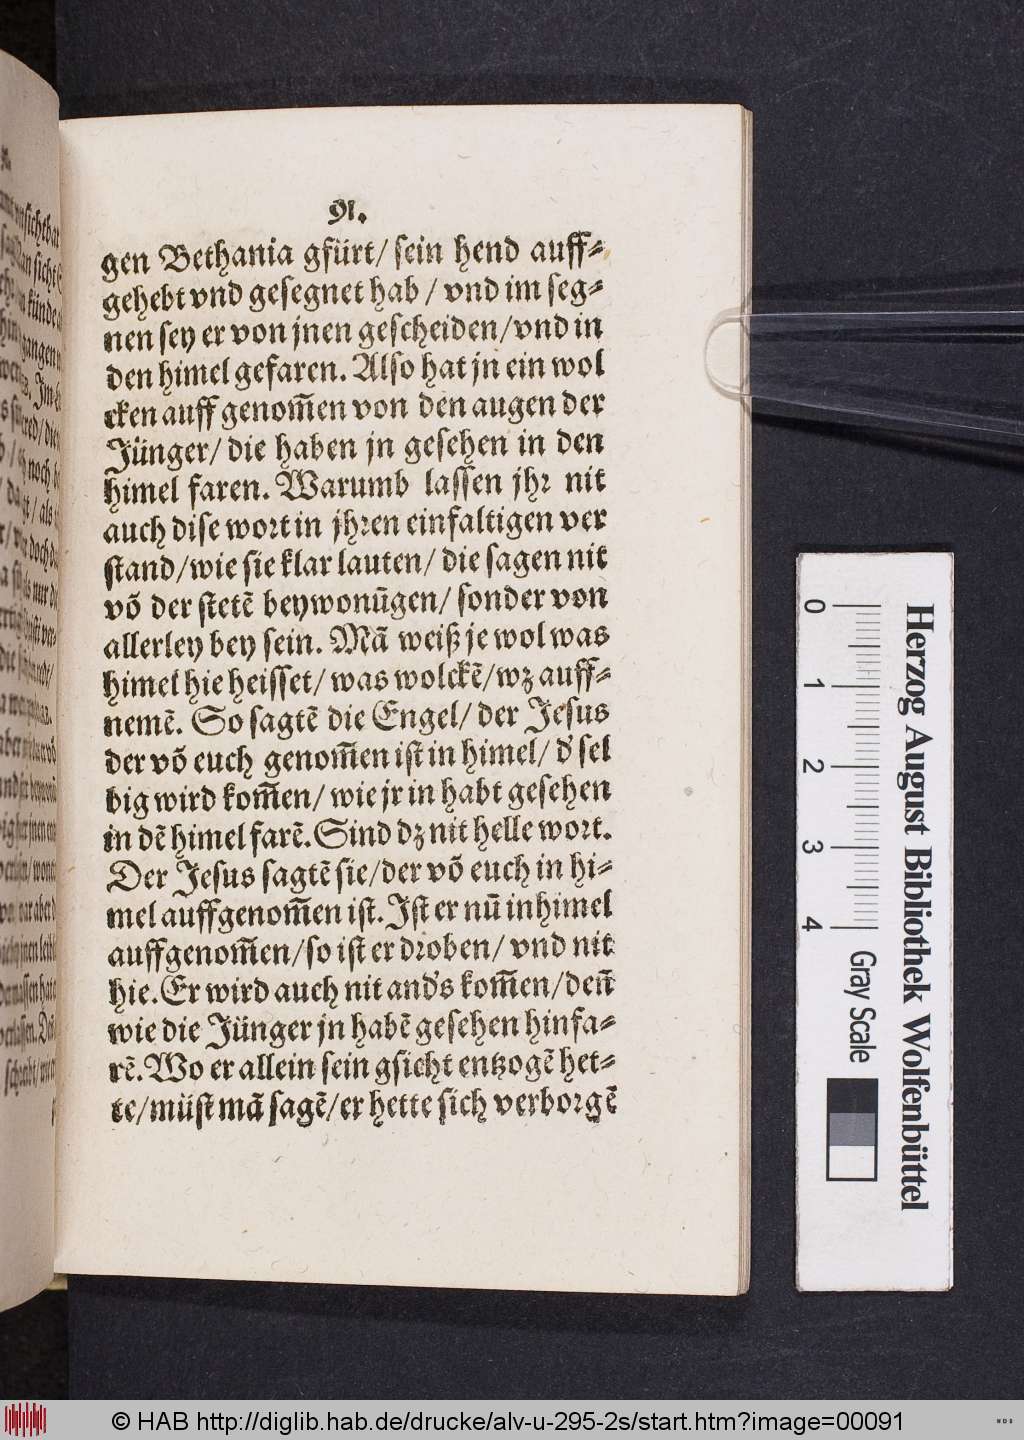 91.
gen Bethania gfürt/ sein hend auff-
gehebt vnd gesegnet hab / vnd im seg-
nen sey er von jnen gescheiden/vnd in
den himel gefaren. Also hat jn ein wol
cken auff genom̃en von den augen der
Jünger/ die haben jn gesehen in den
himel faren. Warumb lassen jhr nit
auch dise wort in jhren einfaltigen ver
stand/wie sie klar lauten/ die sagen nit
võ der stetẽ beywonũgen/ sonder von
allerley bey sein. Mã weiß je wol was
himel hie heisset/ was wolckẽ/wz auff-
nemẽ. So sagtẽ die Engel/ der Jesus
der võ euch genom̃en ist in himel/ d' sel
big wird kom̃en/ wie jr in habt gesehen
in dẽ himel farẽ. Sind dz nit helle wort.
Der Jesus sagtẽ sie/der võ euch in hi-
mel auffgenom̃en ist. Ist er nũ in himel
auffgenom̃en/so ist er droben/ vnd nit
hie. Er wird auch nit and's kom̃en/den̄
wie die Jünger jn habẽ gesehen hinfa-
rẽ. Wo er allein sein gsicht entzogẽ het-
te/müst mã sagẽ/er hette sich verborgẽ
0 1 2 3 4
Gray Scale
Herzog August Bibliothek Wolfenbüttel
© HAB http://diglib.hab.de/drucke/alv-u-295-2s/start.htm?image=00091